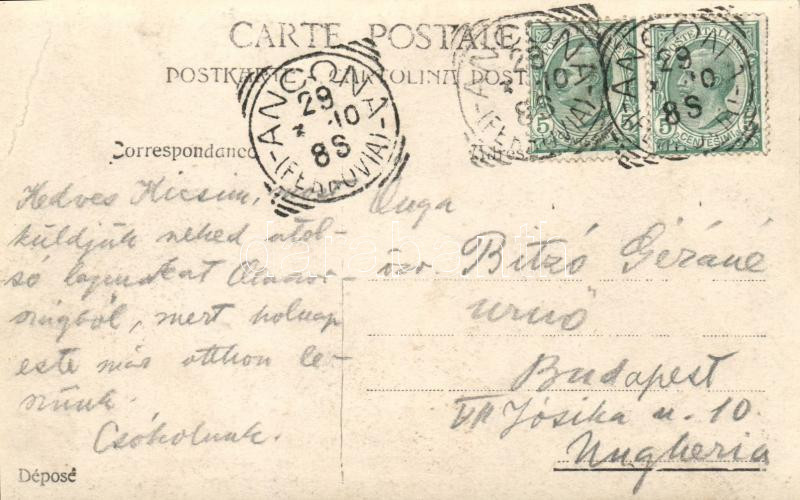 CARTE POSTALE
POSTKARTE - CARTOLINA POST
ANCONA
29
10
8S
(FERROVIA)
ANCONA
29
10
8S
(FERROVIA)
ANCONA
29
10
8S
POSTE ITALIANE
5 CENTESIMI 5
Correspondance
Adres
Kedves Kicsim,
küldjük neked utol-
só lapunkat Olaszor-
szágból, mert holnap
este már otthon le-
szünk.
Csókolunk.
özv. Bitzó Gézáné
urnő
Budapest
VII Jósika u. 10.
Ungheria
Déposé